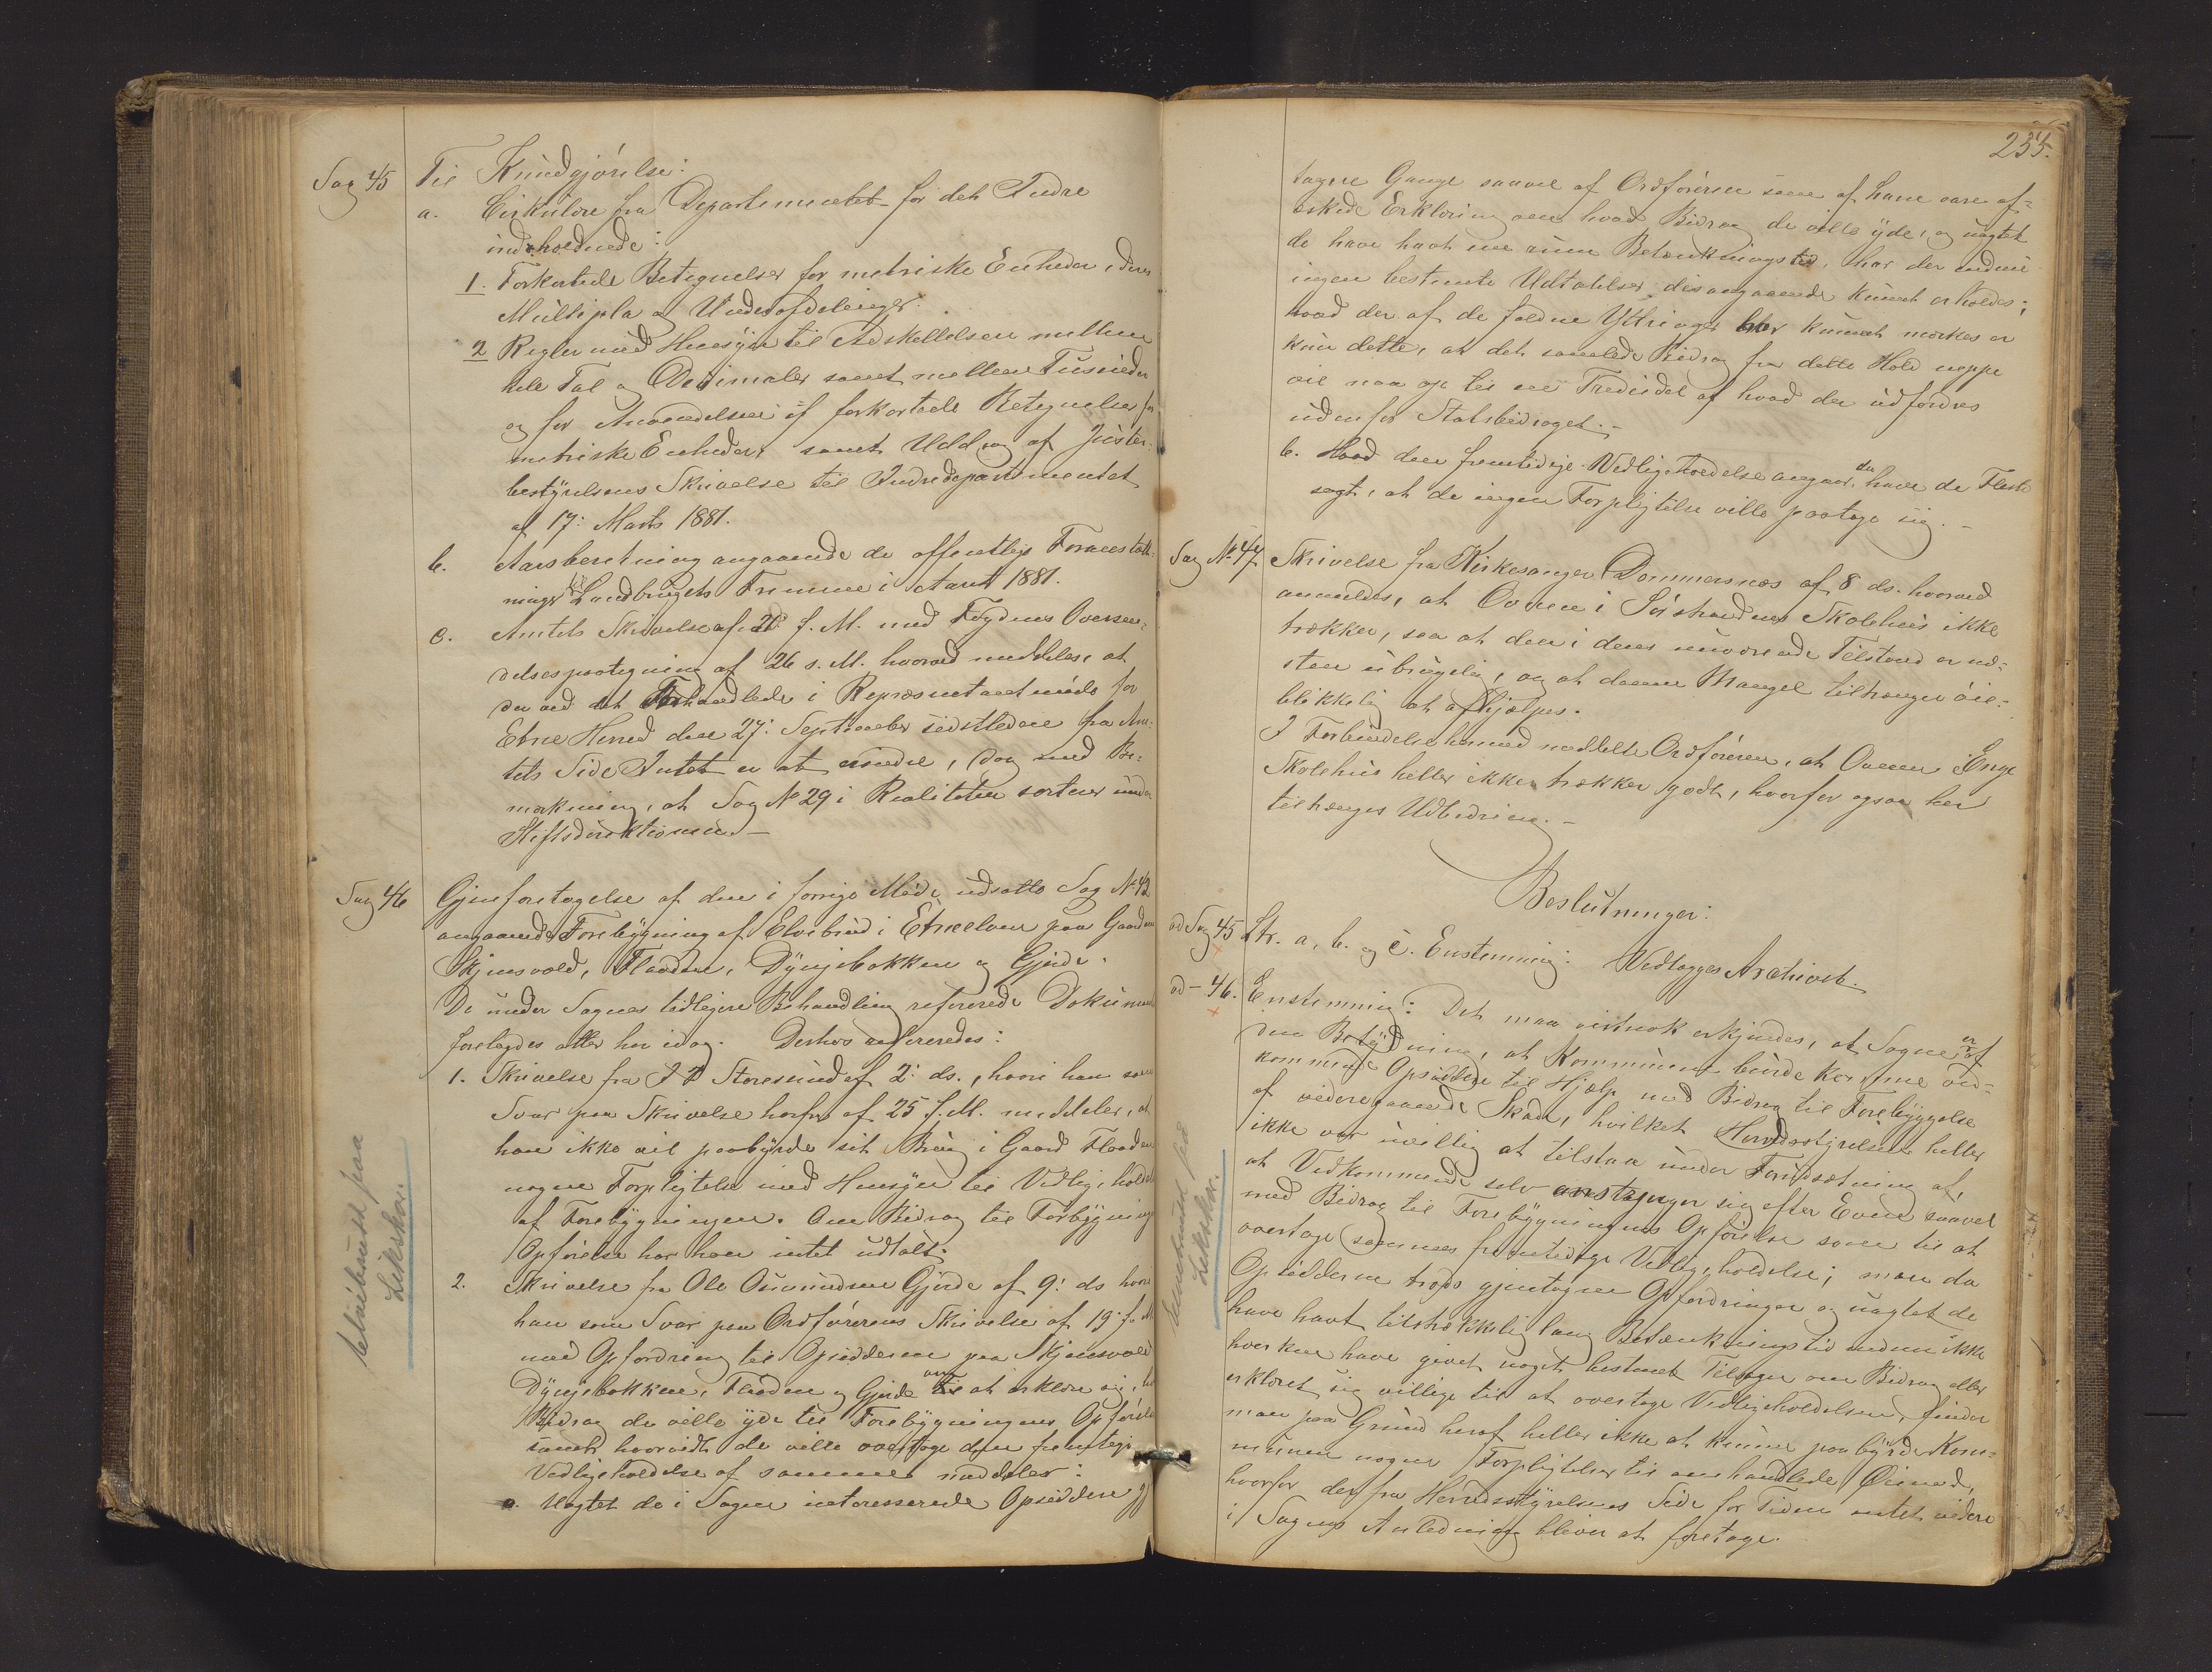 Sag 45 Til Kundgjørelse:
a. Cirkulære fra Departementet for det Indre
indeholdende:
1. Forkortede Betegnelser for metriske Enheder, deres
Multipla og Underafdelinger.
2 Regler med Hensyn til Adskillelsen mellem
hele Tal og Decimaler samt mellem Tusinder
og for Anvendelsen af forkortede Betegnelser for
metriske Enheder, samt Uddrag af Juster-
bestyrelsens Skrivelse til Indredepartementet
af 17: Marts 1881.
b. Aarsberetning angaaende de offentlige Foranstalt-
ninger til Landbrugets Fremme i Aaret 1881.
c. Amtets Skrivelse af 20 f. M. med Fogdens Oversen-
delsespaategning af 26 s. M. hvorved meddeles, at
der ved det Forhandlede i Repræsentantmøde for
Etne Herred den 27: September sidstleden fra Am-
tets Side Intet er at erindre, dog med Be-
mærkning, at Sag No 29 i Realiteten sorterer under
Stiftsdirektionen.-
Sag 46 Gjenforetagelse af den i forrige Møde udsatte Sag No 42
angaaende Forebygning af Elvebrud i Etneelven paa Gaardene
Skjensvold, Flaaden, Dyngebakken og Gjerde.
De under Sagens tidligere Behandling refererede Dokument
forelagdes atter her idag. Derhos refereredes:
1. Skrivelse fra I D Storesund af 2: ds., hvori han som
Svar paa Skrivelse herfra af 25 f. M. meddeler, at
han ikke vil paabyrde sit Brug i Gaard Flaaden
nogen Forpligtelse med Hensyn til Vedligeholdel
af Forebygningen. Om Bidrag til Forbygning
Opførelse har han intet udtalt.
2. Skrivelse fra Ole Osmundsen Gjerde af 9: ds hvori
han som Svar paa Ordførerens Skrivelse af 19: f. M
med Opfordring til Opsidderne paa Skjensvold
Dyngebakken, Flaaden og Gjerde om at erklære sig,
Bidrag de ville yde til Forebygningens Opførelse
samt hvorvidt de ville overtage den fremtidige
Vedligeholdelse af samme meddeler:
a. Uagtet de i Sagen interesserede Opsiddere
Sekskr.
235.
tagne Gange saavel af Ordføreren som af ham vare af-
æskede Erklæring om hvad Bidrag de ville yde, og uagtet
de have havt en rum Betænkningstid, har der endnu
ingen bestemte Udtalelser desangaaende kunnet erholdes;
hvad der af de faldne Yttringer har kunnet mærkes er
kun dette, at det samlede Bidrag fra dette Hold neppe
vil naa op til en Trediedel af hvad der udfordres
udenfor Statsbidraget.-
b. Hvad den fremtidige Vedligeholdelse angaar, da have de Fleste
sagt, at de ingen Forpligtelse ville paatage sig.-
Sag No 47 Skrivelse fra Kirkesanger Dommersnæs af 8 ds. hvorved
anmeldes, at Ovnen i Sørstrandens Skolehus ikke
trækker, saa at den i dens nuværende Tilstand er næ-
sten ubrugelig, og at denne Mangel tiltrænger øie-
blikkelig at afhjælpes.
I Forbindelse hermed meddelte Ordføreren, at Ovnen i Enge
Skolehus heller ikke trækker godt, hvorfor ogsaa her
tiltrænges Udbedring.-
Beslutninger:
ad Sag 45 Ltr. a, b. og c. Enstemmig: Vedlægges Archivet.
ad - 46. Enstemmig: Det maa vistnok erkjendes, at Sagen er af
den Betydning, at Kommunen burde komme ved-
kommende Opsiddere til Hjælp med Bidrag til Forebyggelse
af videregaaende Skade, hvilket Herredsstyrelsen heller
ikke var uvillig at tilstaa under Forudsætning af,
at Vedkommende selv anstrenger sig efter Evne saavel
med Bidrag til Forebygningens Opførelse som til at
overtage sammes fremtidige Vedligeholdelse; men da
Opsidderne trods gjentagne Opfordringer og uagtet de
have havt tilstrækkelig lang Betænkningstid endnu ikke
hverken have givet noget bestemt Tilsagn om Bidrag eller
erklæret sig villige til at overtage Vedligeholdelsen, finder
man paa Grund heraf heller ikke at kunne paabyrde Kom-
munen nogen Forpligtelser til omhandlede Øiemed,
hvorfor der fra Herredsstyrelsens Side for Tiden intet videre
i Sagens Anledning bliver at foretage.
Sekskr.